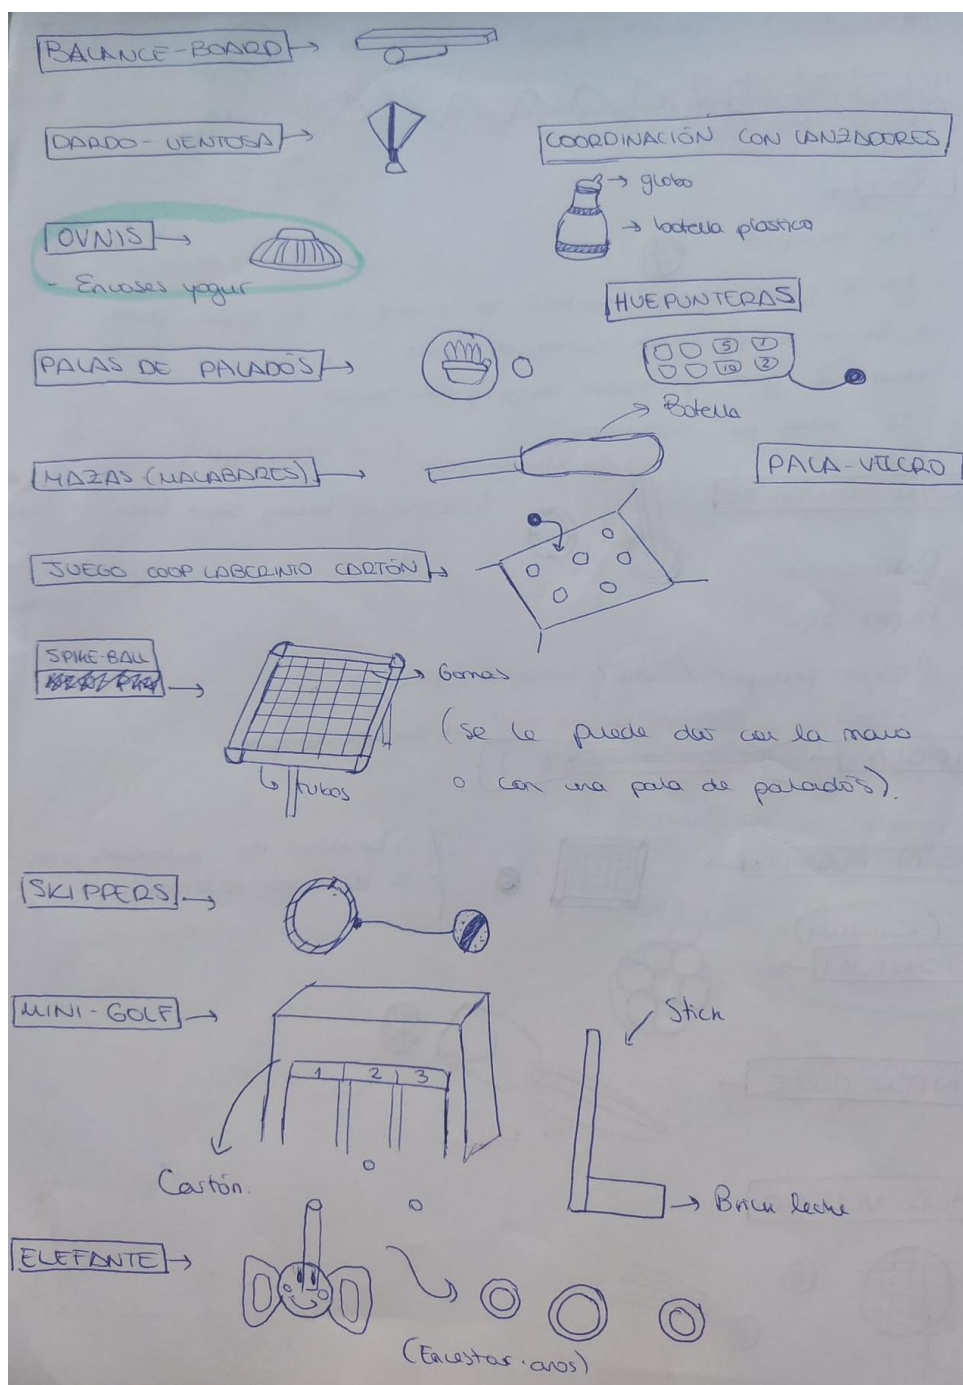 BALANCE-BOARD
DARDO-VENTOSA
COORDINACIÓN CON LANZADORES
globo
botella plástico
OVNIS
- Envases yogur
HUEPUNTERAS
5 1
10 2
PALAS DE PALADÓS
Botella
MAZAS (MALABARES)
PALA-VELCRO
JUEGO COOP LABERINTO CARTÓN
SPIKE-BALL
Gomas
(se le puede dar con la mano
o con una pala de paladós).
tubos
SKIPPERS
MINI-GOLF
Stick
1 2 3
Cartón.
Brick leche
ELEFANTE
(Encestar aros)